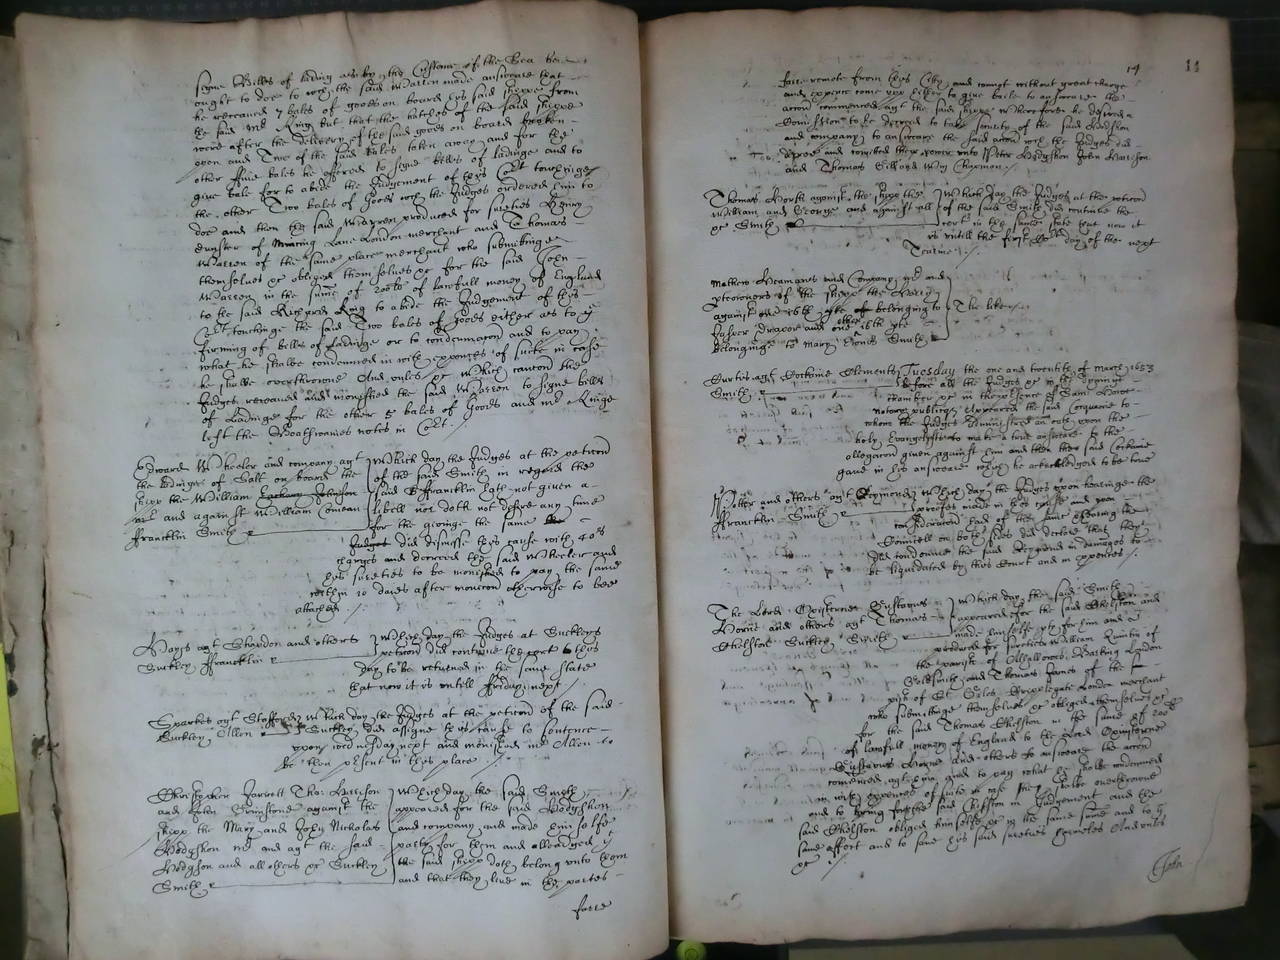 signe Bills of lading as by the Custome of the Sea hee
ought to doe to wch the said Warren made answere that
he received 7 bales of goods on board his said shipp from
the said Mr King but that the hatches of the said shippe
were after the delivery of the said goods on board broken
open and Two of the said bales taken away and for the
other five bales he offered to signe bills of ladinge and to
give bale for to abide the Judgement of this Cort touchinge
the other Two bales of Goods wch the Judges ordered him to
doe and then the said Warren produced for sureties Henry
Lane London merchant and Thomas
Warren of the same place merchant who submittinge
themselves &c obliged themselves &c for the said John
Warren in the summe of 200li of lawfull money of England
to the said Richard King to abide the Judgement of this
Cort touchinge the said Two bales of Goods either as to ye
firming of bills of ladinge or to condemnacon and to pay
what he shalbe condemned in with expences of suite in case
he shalbe overthrowne And unles &c Which caucon the
Judges received and monished the said Warren to signe bills
of Ladinge for the other 5 bales of Goods and Mr Kinge
left the notes in Cort.
Edward Wheeler and company agt
the ladinge of Salt on board the
shipp the William Zachary Johnson
mr and against William
Francklin Smith
Which day the Judges at the peticon
of the said Smith in regard the
said Francklin hath not given a
libell nor doth not desire any time
for the giveing the same the
Judges did dismisse this cause with 40s
charges and decreed the said Wheeler and
his sureties to be monished to pay the same
within 10 dayes after monicon otherwise to bee
attached
Hayes agt and others
Suckley Francklin
Which day the Judges at Suckleys
peticon did continue the cert to this
day to be returned in the same state
that now it is untill Friday next
Sparkes agt Stafford
Suckley Allen
Which day the Judges at the peticon of the said
Suckley did assigne this cause to sentence
upon wednesday next and monished mr Allen to
be then present in this place
Christopher Jarrett Tho: Harrison
and John Brimstone against the
shipp the Mary and John Nicholas
Hodgshon mr and agt the said
Hodgson and all others &c Suckley
Smith
Which day the said Smith
appeared for the said Hodgshon
and company and made himselfe
party for them and alleadged yt
the said shipp doth belong unto them
and that they live in the partes
farre
14
14
farre remote from this City and cannot without great charge
and expence come upp hither to give baile to answere the
accon commenced agt the said shipp Wherefore he desired
Commission to be decreed to take surety of the said Hodshon
and company to answere the said accon wch the Judges did
decree and comitted their power unto Peter Hodgshon John Harrison
and Thomas
Thomas North against the shipp the
William and George and against all
&c Smith
Which day the Judges at the peticon
of the said Smith did continue the
cert. in the same state that now it
is untill the first day of the next
Tearme
Mathew and Company and
of the shipp the
against one 16th pte of belonging to
draper and one other 16th pte
belonginge to Mary Smith
The like
Curtis agt Cockaine Clements
Smith
Tuesday the one and twentith of March 1653
before all the Judges &c in the dyninge
chamber &c in the presence of Saml Howe
notary publique Appeared the said Cocquaine to
whom the Judges administred an oath upon the
holy Evangelistes to make a true answere to the
allegacon given against him and then the said Cockaine
gave in his answeare which he acknowledged to be true
Potter and others agt Raymond
Francklin Smith
Which day the Judges upon hearinge the
proofes made in this cause and upon
consideracon had of the same & hearing the
Councell on both sides did declare that they
did condemne the said Raymond in damages to
be liquidated by this Court and in expences
The Lord Oxisterne Gustavus
Horne and others agt Thomas
Chelston Suckley Smith
Which day the said Smith
appeared for the said Chelston and
made himselfe pty for him and
produced for sureties William Quintin of
the parish of Allhallowes Barking London
Goldsmith and Thomas James of the
pish of St Giles Cripplegate London merchant
who submittinge themselves &c obliged themselves &c
for the said Thomas Chelston in the summe of
of lawfull money of England to the Lord Oxisterne
Gustavus Horne and others to answeare the accon
comenced agt him and to pay what he shalbe condemned
in with expences of suite in case he shalbe overthrowne
and to bring forth the said Chelston in Judgement and the
said Chelston obliged himselfe &c in the same summe and to ye
same effect and to save his said sureties harmeles And unles
&c
John